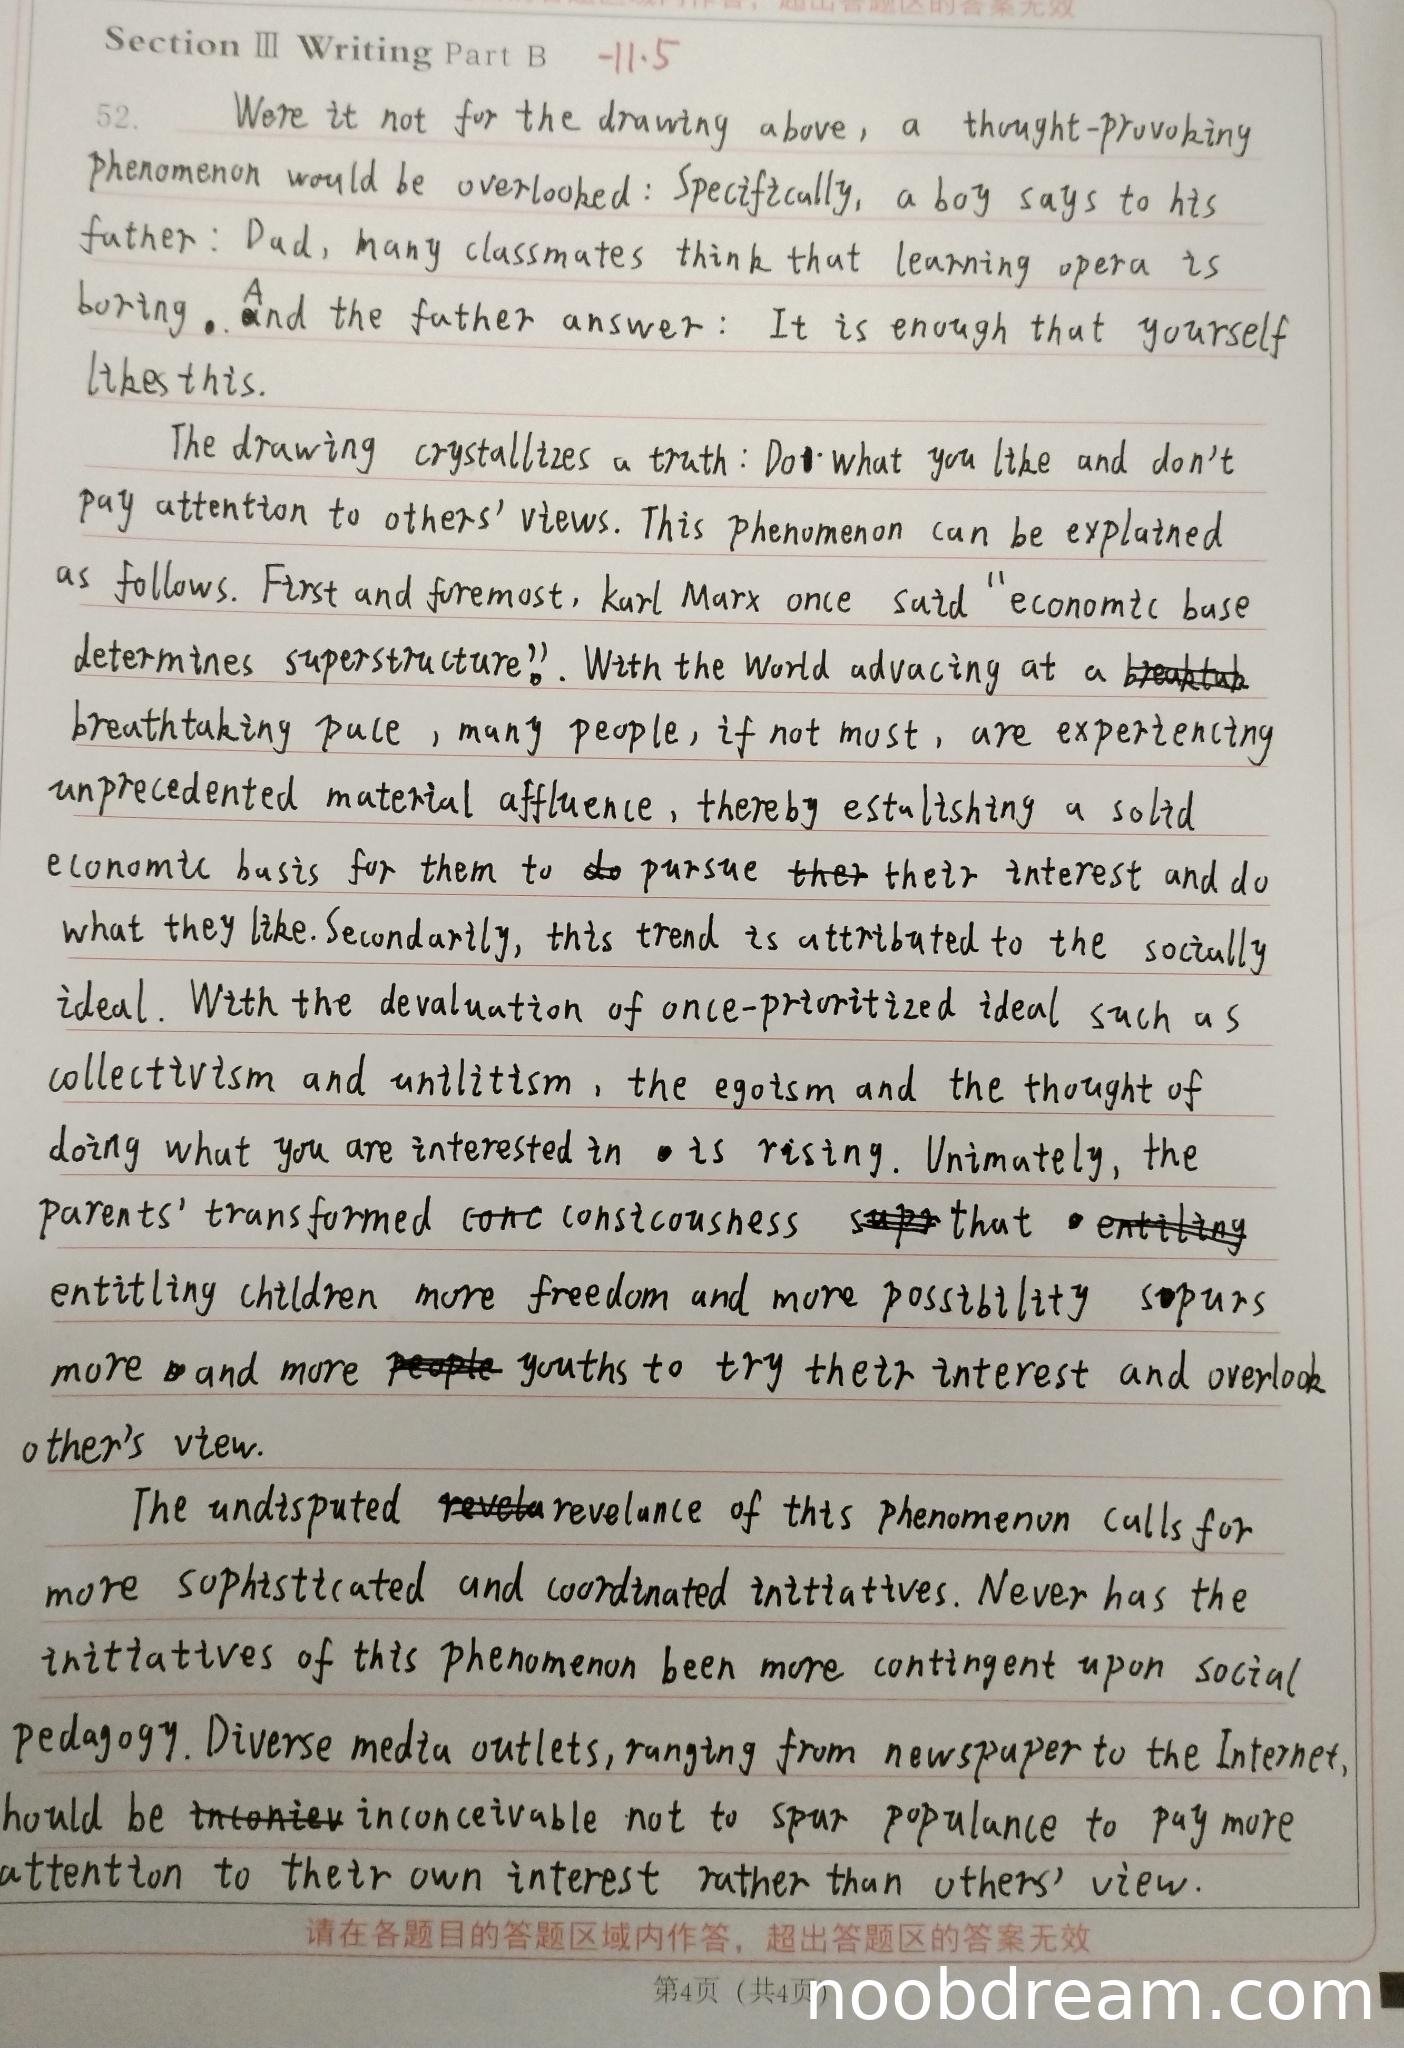 答题区域内作答，超出答题区的答案无效
Section Ⅲ Writing Part B -11.5
52. Were it not for the drawing above, a thought-provoking
phenomenon would be overlooked: Specifically, a boy says to his
father: Dad, many classmates think that learning opera is
boring. And the father answer: It is enough that yourself
likes this.
The drawing crystallizes a truth: Do what you like and don't
pay attention to others' views. This phenomenon can be explained
as follows. First and foremost, karl Marx once said "economic base
determines superstructure". With the World advacing at a
breathtaking pace, many people, if not most, are experiencing
unprecedented material affluence, thereby estalishing a solid
economic basis for them to do pursue ther their interest and do
what they like. Secondarily, this trend is attributed to the socially
ideal. With the devaluation of once-prioritized ideal such as
collectivism and unilitism, the egoism and the thought of
doing what you are interested in is rising. Unimately, the
parents' transformed conc consicousness that entiling
entitling children more freedom and more possibility spurs
more and more people youths to try their interest and overlook
other's view.
The undisputed revela revelance of this phenomenon calls for
more sophisticated and coordinated initiatives. Never has the
initiatives of this phenomenon been more contingent upon social
pedagogy. Diverse media outlets, ranging from newspaper to the Internet,
hould be inconceivable not to spur populance to pay more
attention to their own interest rather than others' view.
请在各题目的答题区域内作答，超出答题区的答案无效
第4页（共4页）
noobdream.com